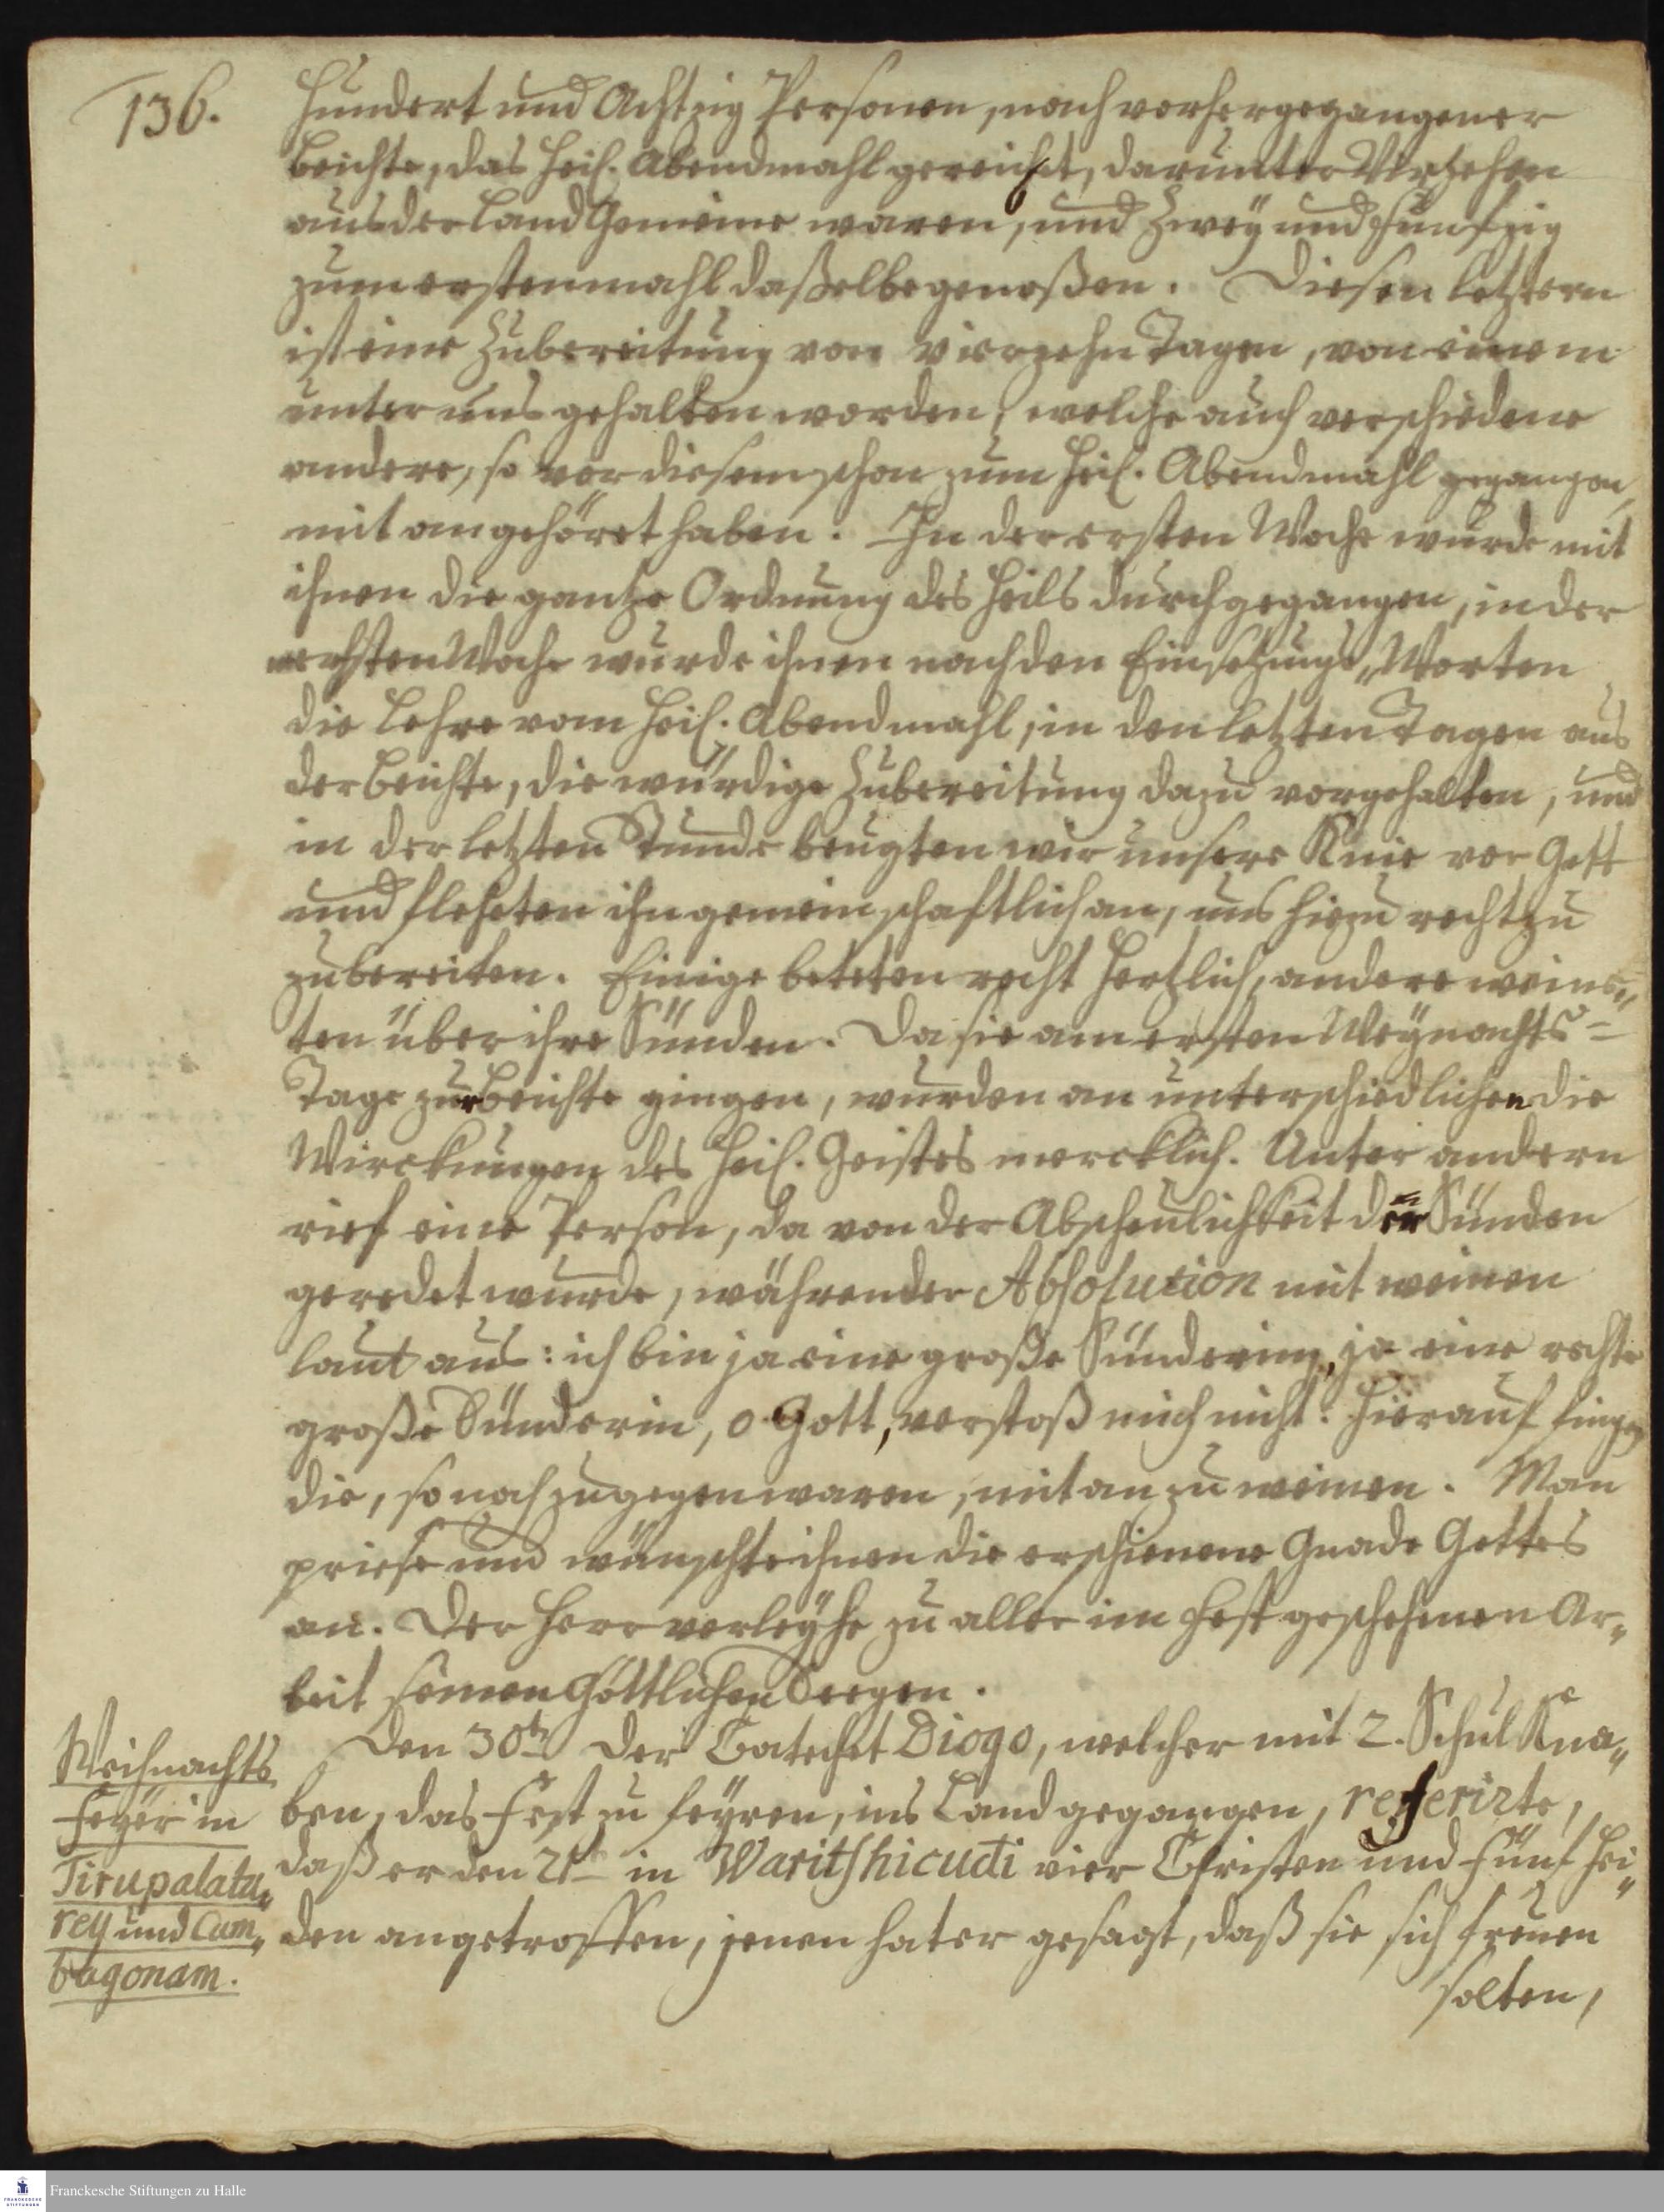 136.
Hundert und Achtzig Personen, nach vorhergegangener
beichte, das Heil. Abendmahl gereicht, darunter Virzehen
aus der Land Gemeine waren, und Zweÿ und Funfzig
zum erstenmahl daßelbe genoßen. Diesen letztern
ist eine Zubereitung von vierzehn Tagen, von einem
unter uns gehalten worden, welche auch verschiedene
andere, so vor diesem schon zum Heil. Abendmahl gegangen,
mit angehöret haben. In der ersten Woche wurde mit
ihnen die gantze Ordnung des Heils durchgegangen, in der
nechsten Woche wurde ihnen nach den Einsetzungs„Worten
die Lehre vom Heil. Abendmahl, in den letzten Tagen aus
der beichte, die würdige Zubereitung dazu vorgehalten, und
in der letzten Stunde beugten wir unsere Knie vor Gott
und fleheten ihn gemeinschaftlich an, uns hiezu recht zu
zubereiten. Einige beteten recht hertzlich, andere weine„
ten über ihre Sünden. Da sie am ersten Weÿnachts=
Tage zur beichte gingen, wurden an unterschiedlichen die
Wirckungen des Heil. Geistes mercklich. Unter andern
rief eine Person, da von der Abscheulichkeit der Sünden
geredet wurde, währender Absolution mit weinen
laut aus: ich bin ja eine große Sünderin, ja eine rechte
große Sünderin, o Gott, verstoß mich nicht: Hierauf fingen
die, so noch zugegen waren, mit an zu weinen. Man
priese und wünschte ihnen die erschienene Gnade Gottes
an. Der Herr verleÿhe zu aller im Fest geschehenen Ar„
beit seinen Göttlichen Seegen.
Den 30t Der Catechet Diogo, welcher mit 2. Schul Kna„
ben, das Fest zu feÿren, ins Land gegangen, referirte,
daß er den 21t in Waritshicudi vier Christen und fünf Hei„
den angetroffen, jenen hat er gesagt, daß sie sich freuen
solten,
Weihnachts
Feÿer in
Tirupalatu„
rey und Cum„
bagonam.
Franckesche Stiftungen zu Halle